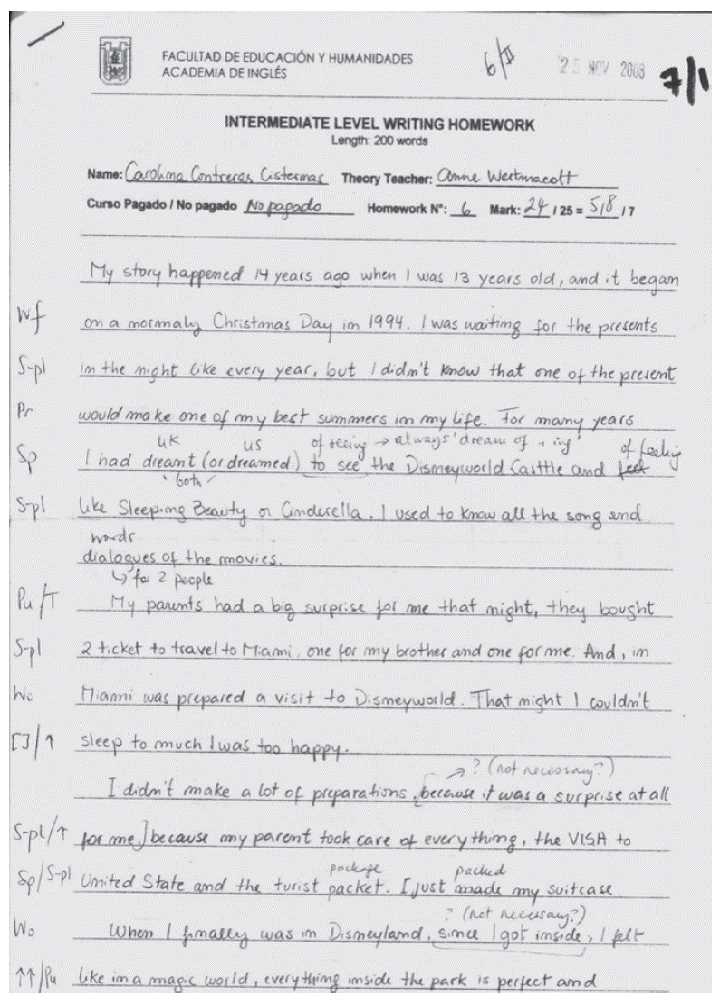 FACULTAD DE EDUCACIÓN Y HUMANIDADES
ACADEMIA DE INGLÉS
25 NOV 2008
7/1
INTERMEDIATE LEVEL WRITING HOMEWORK
Length: 200 words
Name: Carolina Contreras Cisternas Theory Teacher: Anne Westmacott
Curso Pagado / No pagado No pagado Homework Nº: 6 Mark: 24 / 25 = 5,8 / 7
My story happened 14 years ago when I was 13 years old, and it began
Wf on a normaly Christmas Day in 1994. I was waiting for the presents
S-pl in the night like every year, but I didn't know that one of the present
Pr would make one of my best summers in my life. For many years
UK US of seeing → always 'dream of + ing' of feeling
Sp I had dreamt (or dreamed) to see the Disneyworld Casttle and feel
both
S-pl like Sleeping Beauty or Cinderella. I used to know all the song and
words
dialogues of the movies.
↳ for 2 people
Pu/T My parents had a big surprise for me that night, they bought
S-pl 2 ticket to travel to Miami, one for my brother and one for me. And, in
Wo Miami was prepared a visit to Disneyworld. That night I couldn't
[]/↑ sleep to much I was too happy.
→ ? (not necessary?)
I didn't make a lot of preparations, because it was a surprise at all
S-pl/↑ for me] because my parent took care of everything, the VISA to
package packed
Sp/S-pl United State and the turist packet. I just made my suitcase
? (not necessary?)
Wo When I finally was in Disneyland, since I got inside, I felt
↑↑/Pu like in a magic world, everything inside the park is perfect and